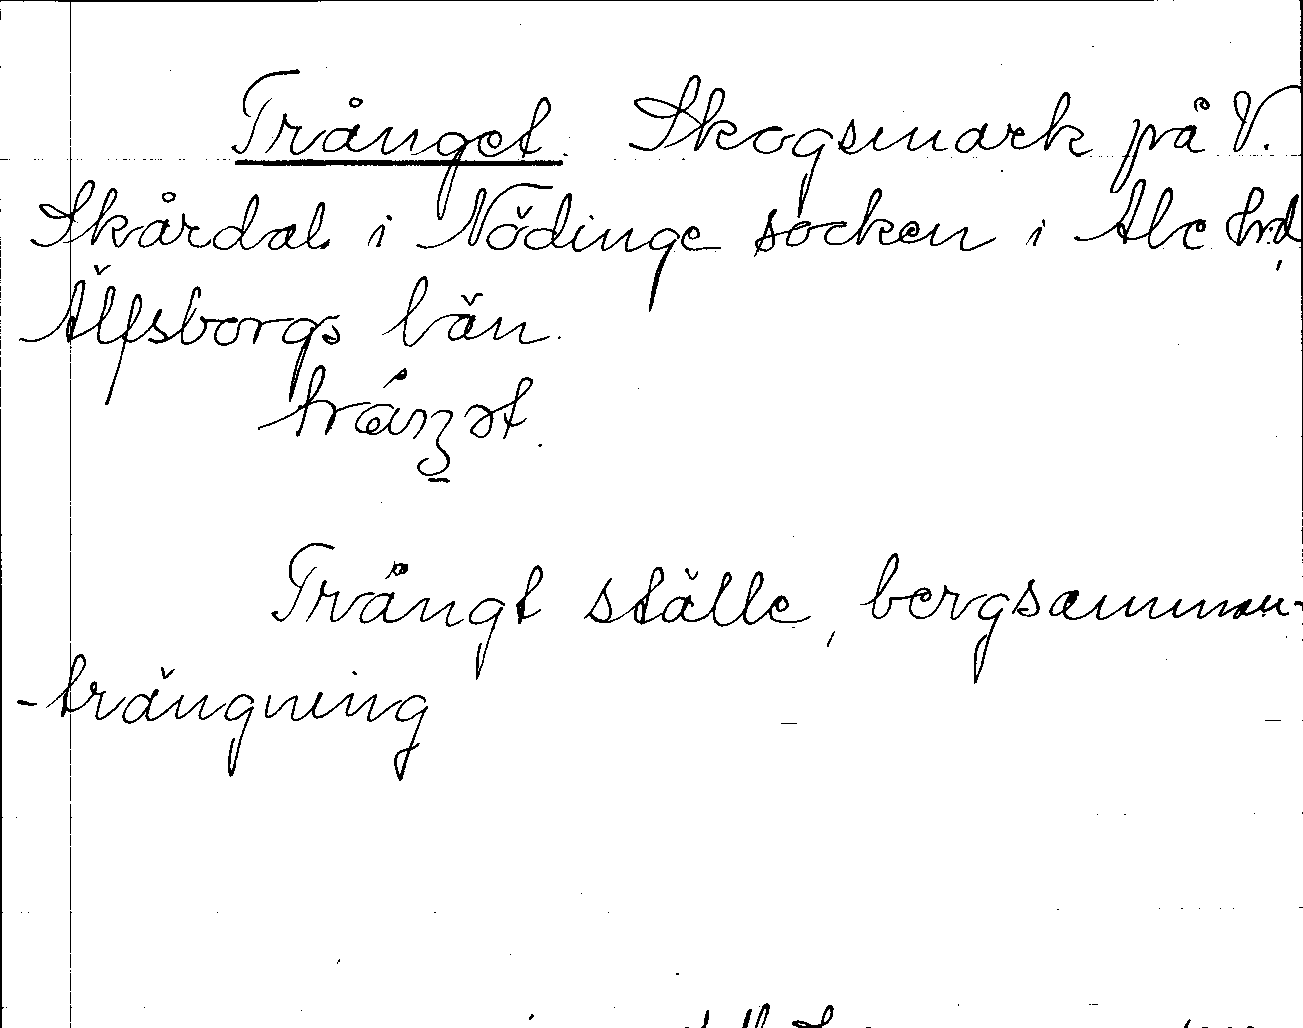 Trånget. Skogsmark på V.
Skårdal i Nödinge socken i Ale hrd,
Älfsborgs län.
Trångt ställe, bergsamman-
-trängning